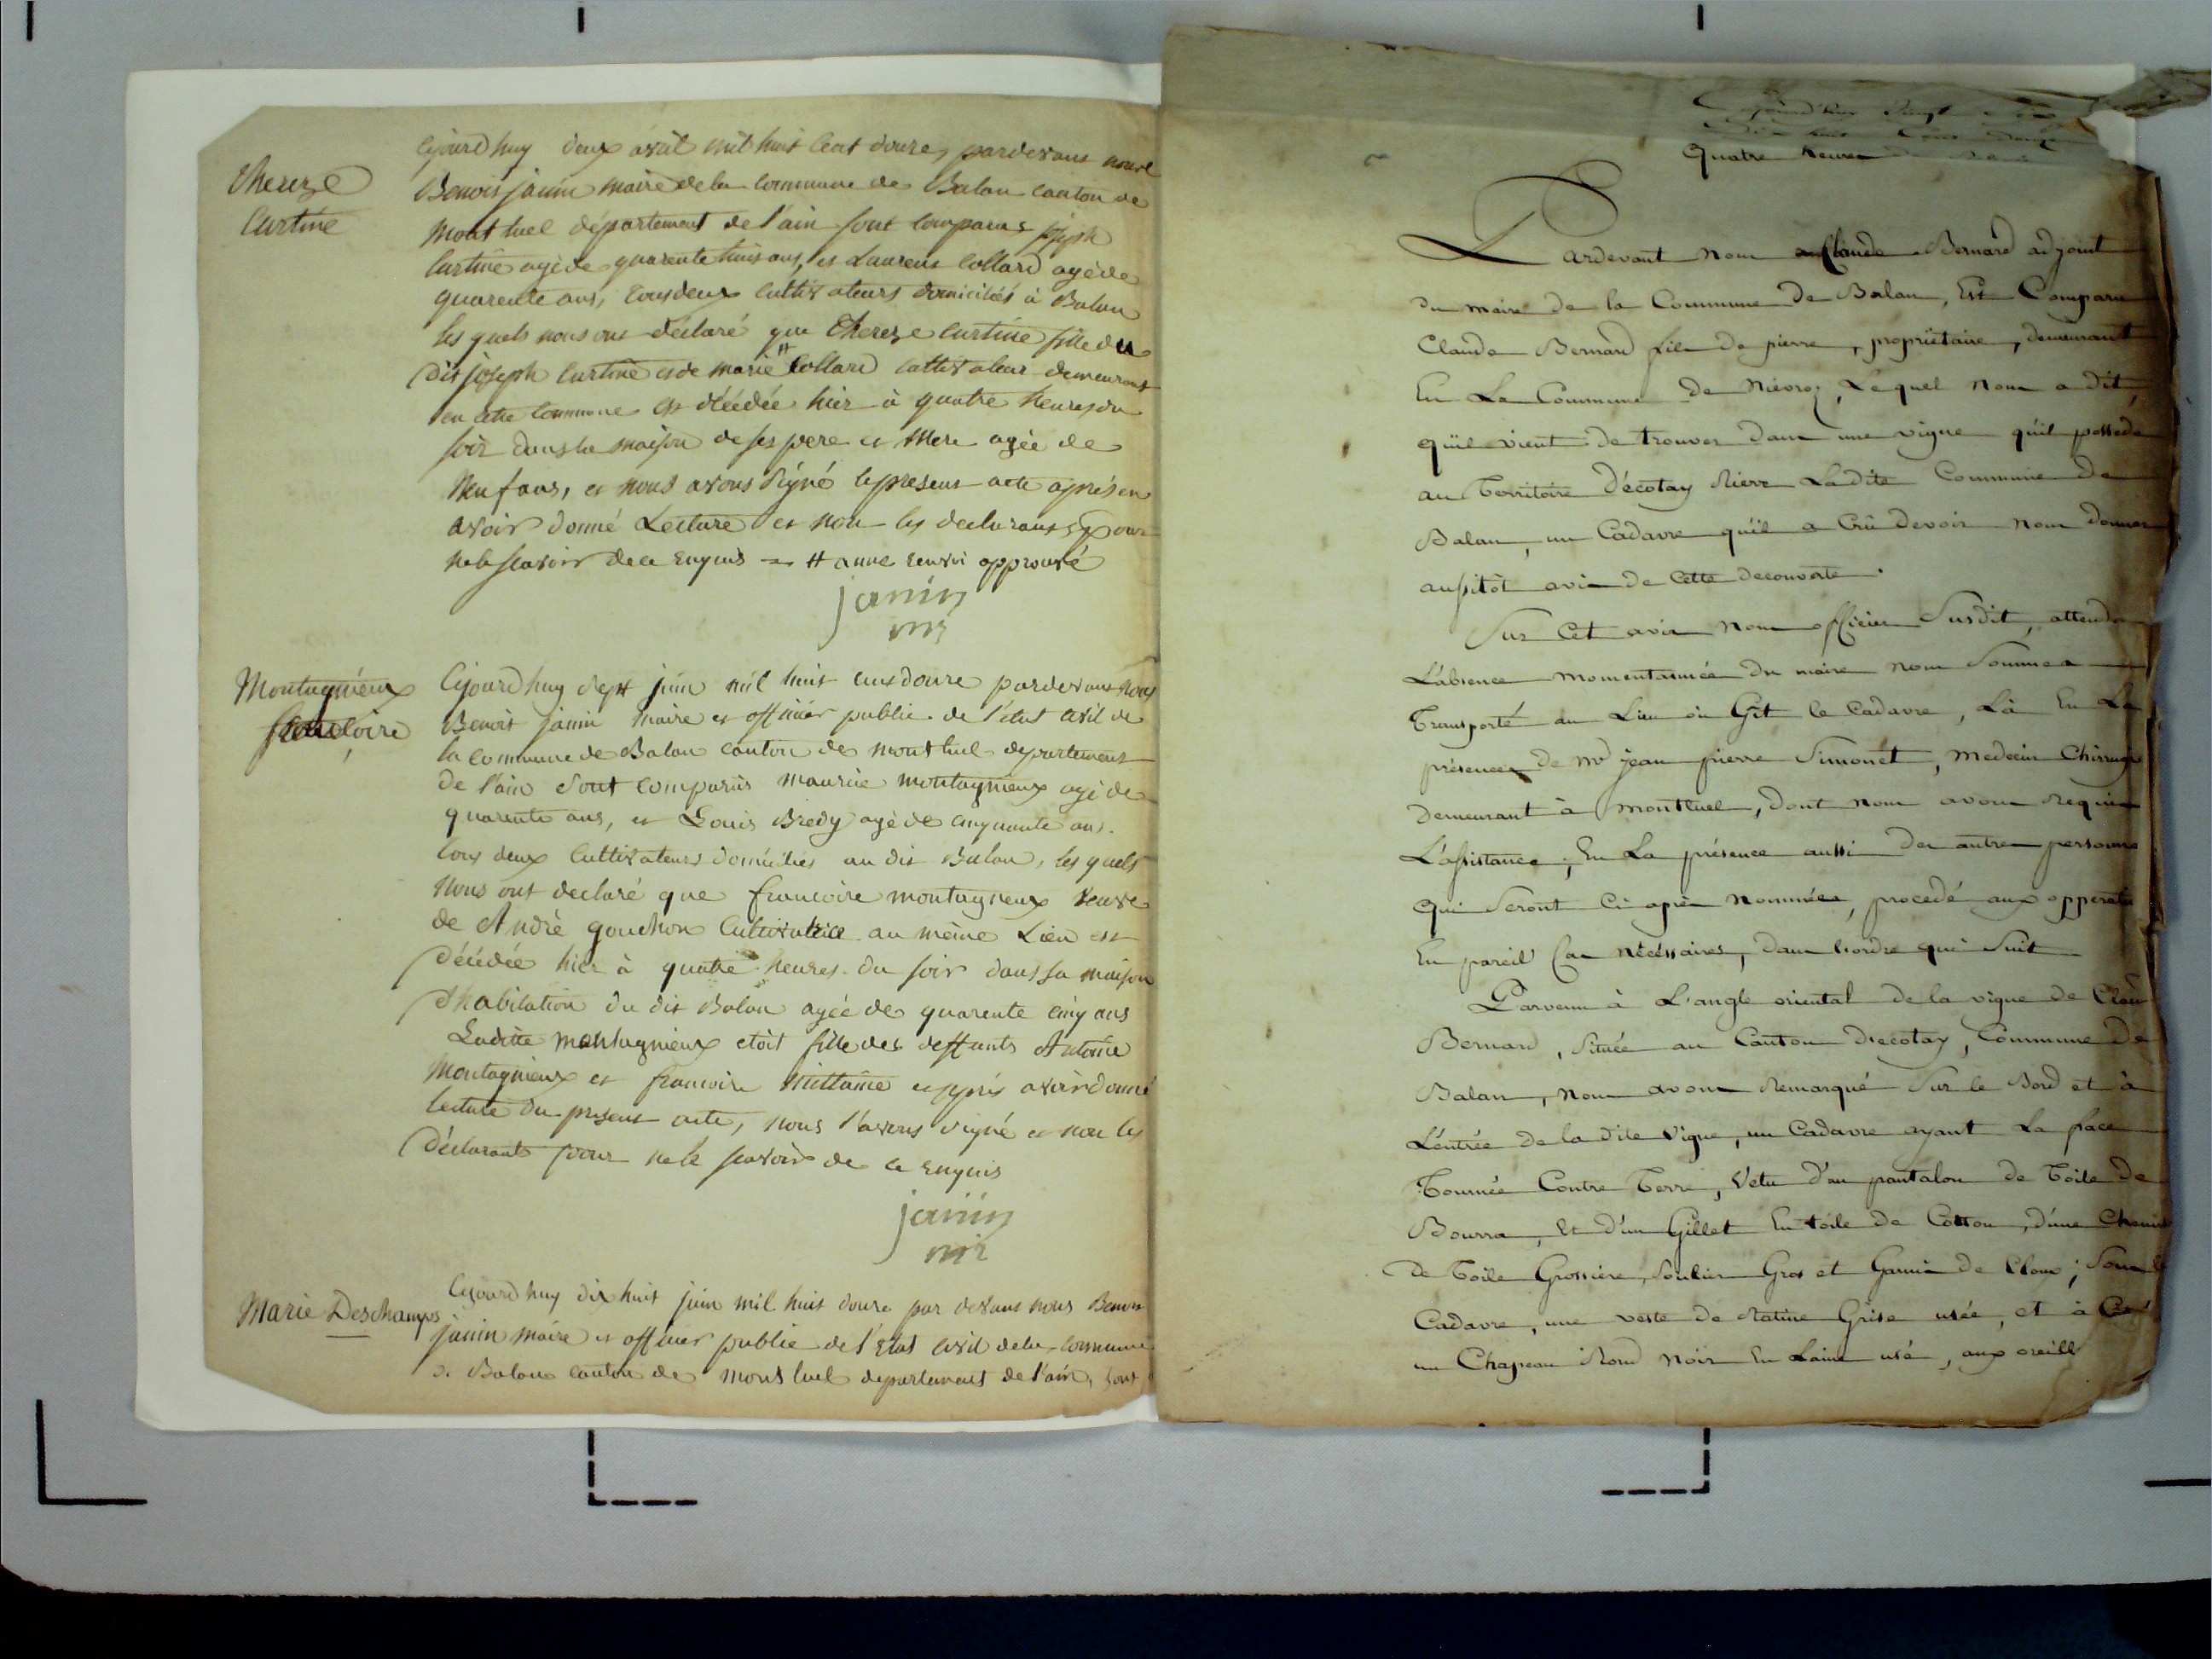 Thereze
Curtine
Cejourd huy deux avril mil huit Cent douze, pardevant nous
Benoit janin maire de la Commune de Balan canton de
Montluel département de l'ain sont comparus joseph
Curtine agé de quarente huit ans, et Laurent Collard agé de
quarente ans, tous deux cultivateurs domiciliés à Balan
les quels nous ont déclaré que Thereze Curtine fille du
dit joseph Curtine et de marie # Collard cultivateur demeurant
en cette Commune est décédée hier à quatre heures du
soir dans la maison de ses pere et Mere agée de
Neuf ans, et nous avons signé le present acte après en
avoir donné Lecture et non les declarants pour
ne le scavoir de ce enquis = # anne renvoi approuvé
janin
Montagnieux
francoise
Cejourd huy sept juin mil huit cent douze pardevant nous
Benoit janin maire et officier public de l'état civil de
la commune de Balan canton de montluel departement
de l'ain sont comparus maurice montagnieux agé de
quarente ans, et Louis Bredy agé de cinquante ans.
tous deux Cultivateurs domiciliés au dit Balan, les quels
Nous ont declaré que francoise montagneux veuve
de André gouchon Cultivatrice au même Lieu est
décédée hier à quatre heures du soir dans sa maison
d'habitation du dit Balan agée de quarente cinq ans
Laditte montagnieux etoit fille des deffunts Antoine
Montagnieux et francoise et après avoir donné
lecture du present acte, nous l'avons signé et non les
déclarants pour ne le scavoir de ce enquis
janin
Marie Deschamps
Cejourd huy dix huit juin mil huit douze par devant nous Benoit
janin maire et officier public de l'Etat civil de la commune
de Balan canton de montluel departement de l'ain, sont
Quatre heures
Pardevant nous Claude Bernard adjoint
du maire de la Commune de Balan, Est Comparu
Claude Bernard fils de pierre, propriétaire, demeurant
En La Commune de Niévroz, Lequel nous a dit,
qu'il vient de trouver dans une vigne qu'il possede
au Territoire d'écotay Rierre Ladite Commune de
Balan, un Cadavre qu'il a Crû devoir nous donner
aussitôt avis de Cette decouverte.
Sur Cet avis nous officier Susdit, attendu
L'absence momentannée du maire nous Sommes
Transporté au Lieu où Git le Cadavre, Là En La
présence de Mr jean pierre Simonet, medecin Chirurgi
demeurant à montluel, dont nous avons Requis
L'assistance; En La présence aussi des autres personnes
qui Seront Ci après nommées, procedé aux opperati
En pareil Cas nécéssaires, dans l'ordre qui Suit
Parvenu à L'angle oriental de la vigne de Clau
Bernard, Située au Canton d'ecotay, Commune de
Balan, nous avons Remarqué Sur le Bord et à
L'entrée de la dite Vigne, un Cadavre ayant La face
Tournée Contre Terre, Vetu d'un pantalon de Toile de
Bourra, Et d'un Gillet En toile de Cotton, d'une Chemis
de Toile Grossiere, Soulier Gros et Garnis de Cloux; Sous le
Cadavre, une veste de Ratine Grise usée, et à Coté
un Chapeau Rond noir En Laine usé, aux oreill